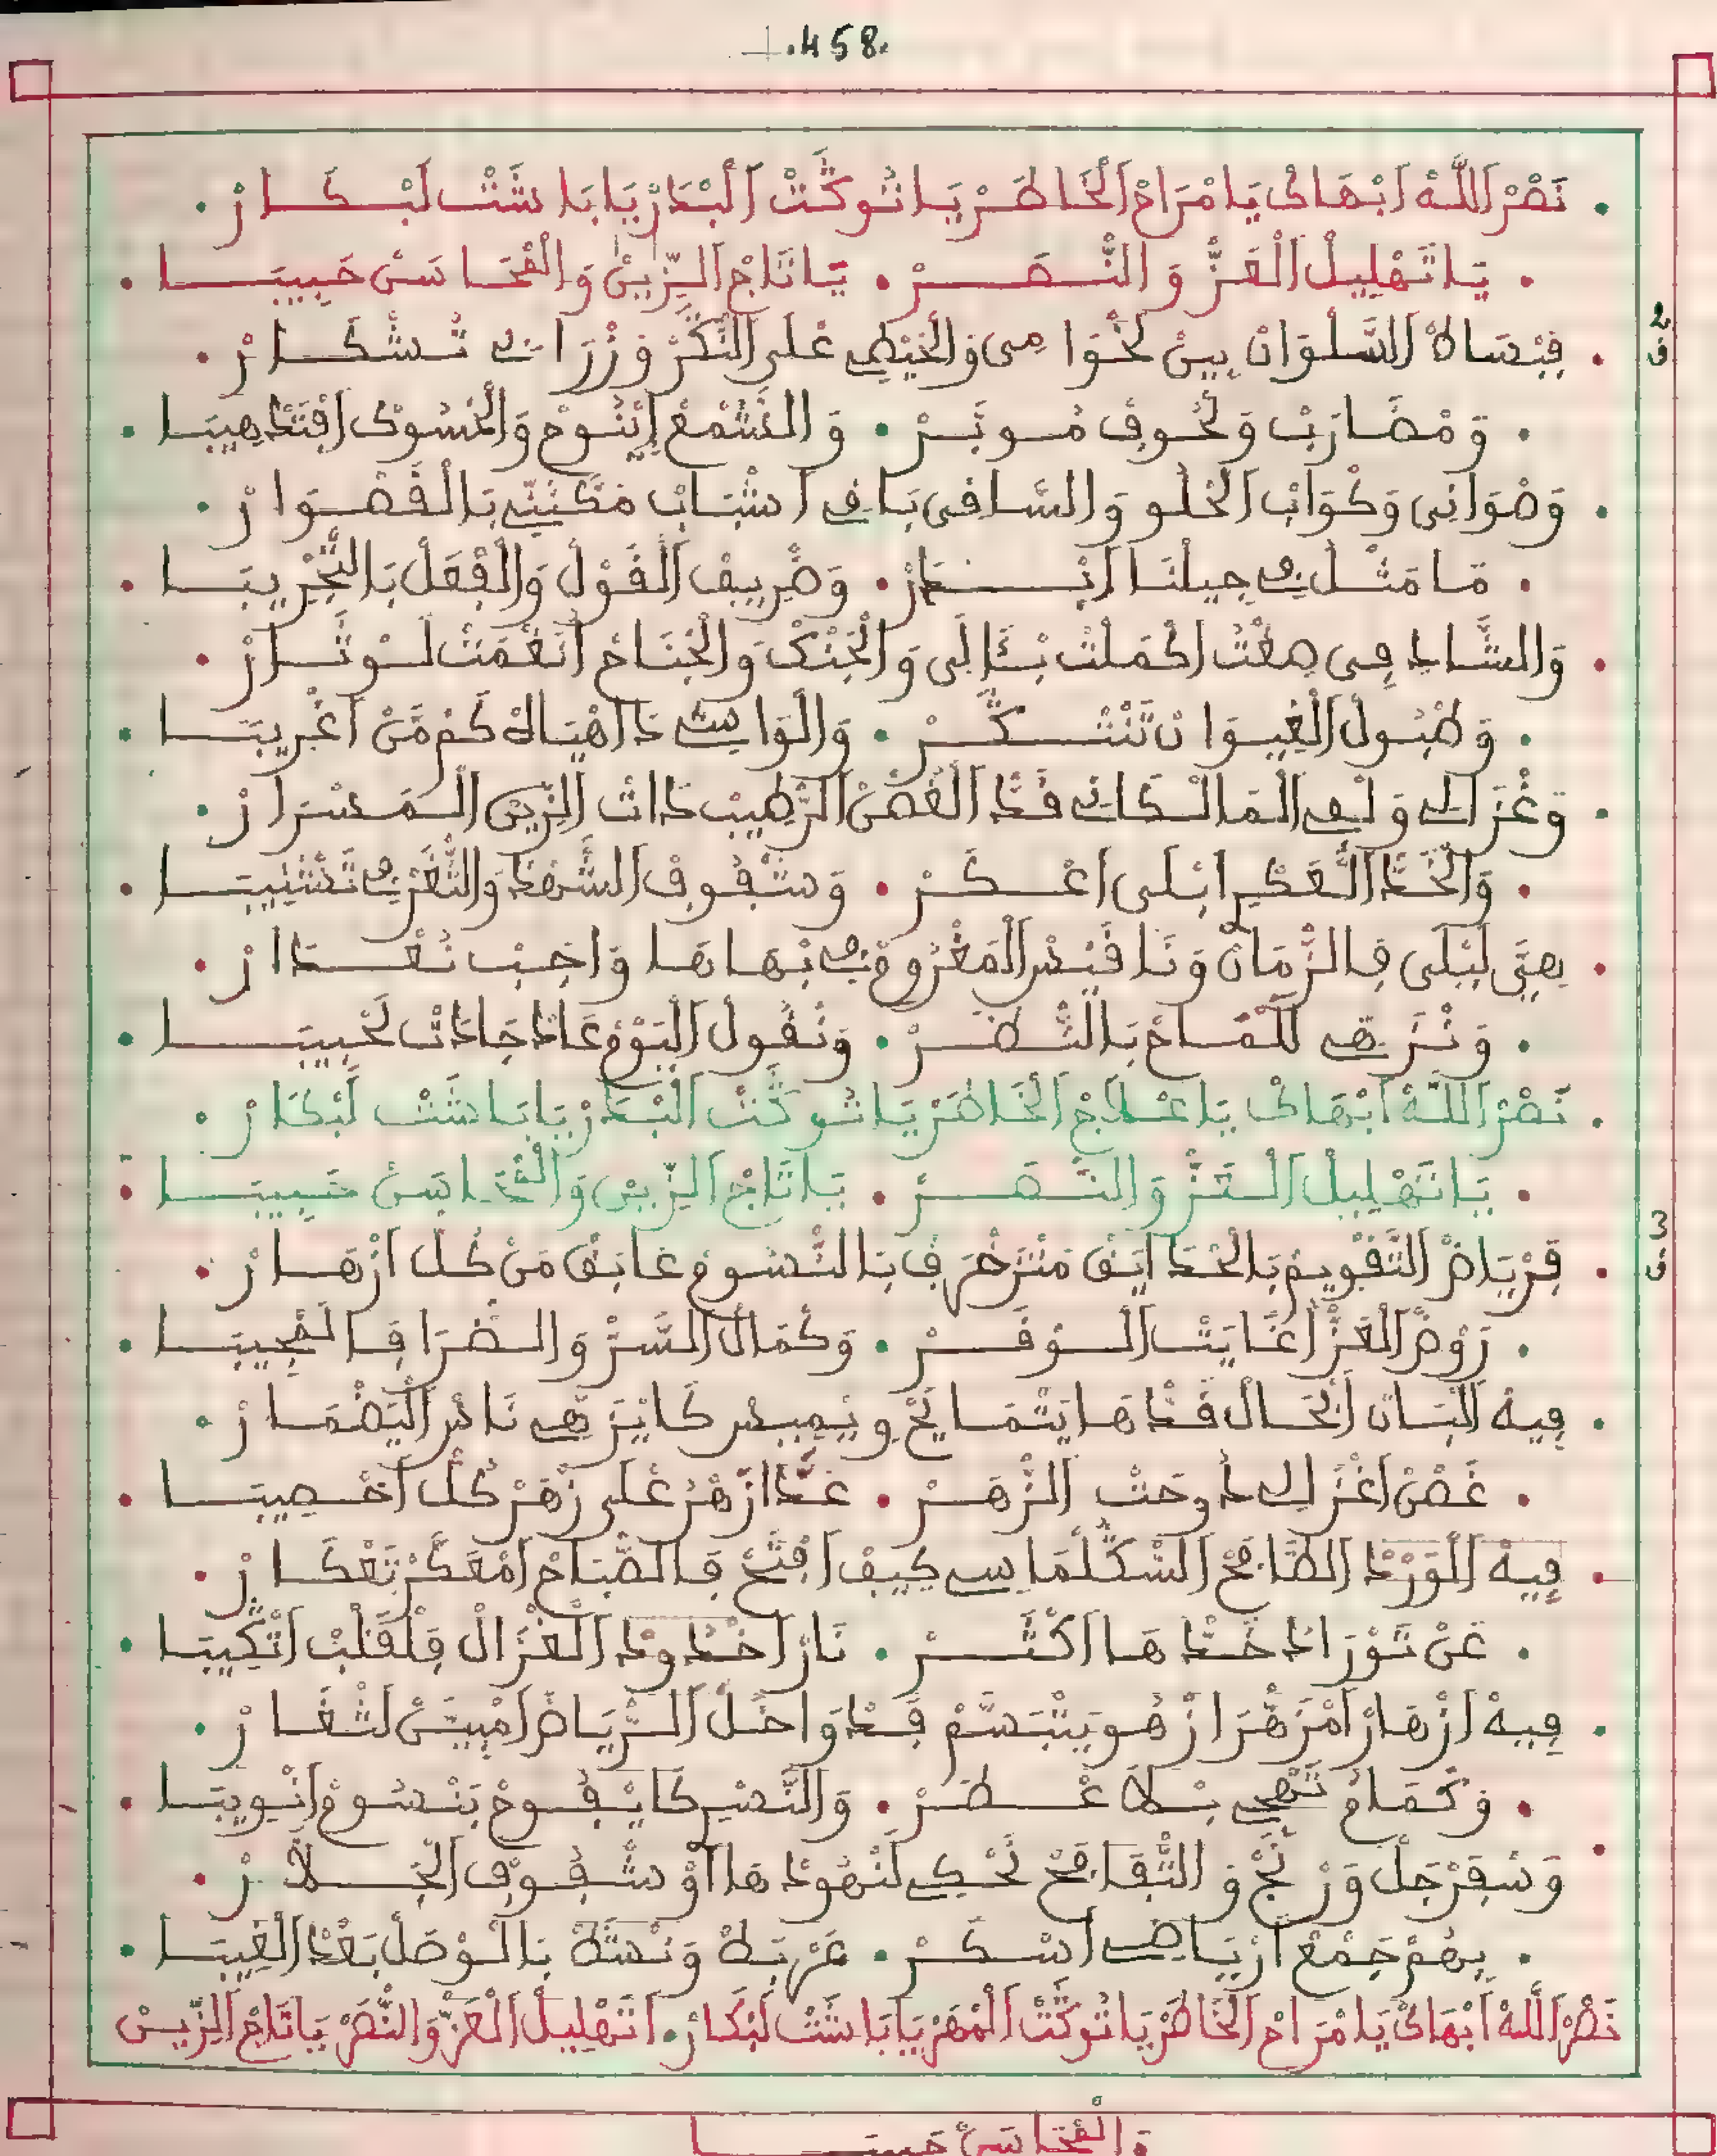 .458.
. نَصْرْ اَللَّهْ اَبْهَاكْ يَا مْرَاحْ اَلْخَاطَرْ يَا تُوكَتْ اَلْبْدَرْ يَا بَاشَتْ لَبْكَارْ .
. يَا تَهْلِيلْ اَلْعَزّْ وَ النَّصَرْ . يَا تَاجْ اَلزِّينْ وَالْفْخَا سَتْ حَبِيبَا .
2 ف
. فِبْسَاطْ اَلسَّلْوَانْ بِينْ لَخْوَا وَالْخِيطِي عْلَى النَّكْرْ وَزْرَابِي تَشْكَارْ .
. وَمْضَارَبْ وَلْحُوفْ مُوبَرْ . وَ الشَّمْعْ اِيْنُوحْ وَالْحْسُوكْ اَفْتَدْهِيبَا .
. وَصْوَانِي وَكْوَابْ اَلْحْلُو وَ السَّاقِي بَاقِي اَشْبَابْ مَكْتِي بَالْقَصْوَارْ .
. مَا مَثْلُ فِي جِيلْنَا اَبْدَرْ . وَظْرِيفْ اَلْقُولْ وَالْفْعَلْ بَالتَّجْرِيبَا .
. وَالشَّادِ صِغْتْ اَكْمَلْتْ وَ اَلْجَنْكْ وَالْجْنَاحْ اَنَغْمَتْ لَوْتَارْ .
. وَطْبُولْ اَلْغِيوَانْ تَنْتْكَرْ . وَالْوَاشِي كُمْ مَنْ اَغْرِيبَا .
. وَغْزَالِي وَلْفِي اَلْمَالْكَانِي قَدّْ اَلْغْصَنْ اَلرّْطِيبْ دَاتْ الزِّينْ اَلْمَسْرَارْ .
. وَالْخَدّْ اَلْعَكْرِ اَبْلَى اَعْكَرْ . وَسْقُوفْ اَلشَّهْدْ وَالثَّغْرْ فِي تَشْنِيبَا .
. هِيَ لَيْلَى فَالزّْمَانْ وَنَا قَيْسْ اَلْمَغْرُومْ فِي بْهَاهَا وَاجَبْ نُعْدَارْ .
. وَنْزَهِي لَلْمَاحْ بَالنّْظَرْ . وَنْقُولْ اَلْيَوْمْ عَادْ جَادَتْ لَحْبِيبَا .
. نَصْرْ اَللَّهْ اَبْهَاكْ يَا عْلَاجْ اَلْخَاطَرْ يَا تُوكَتْ اَلْبْدَرْ يَا بَاشَتْ لَبْكَارْ .
. يَا تَهْلِيلْ اَلْعَزّْ وَ النَّصَرْ . يَا تَاجْ اَلزِّينْ وَالْفْخَا سَتْ حَبِيبَا :
3 ف
. فَرْيَاضْ اَلتَّقْوِيمْ بَالْحْدَايَقْ مَتْزَخْرَفْ بَالنّْسُومْ عَابَقْ مَنْ كُلّْ اَزْهَارْ .
. رَوْضْ اَلْعَزّْ اَغَايَتْ اَلْوَفَرْ . وَكْمَالْ اَلسَّرّْ وَالضْرَافَا لَعْجِيبَا .
. فِيهْ اَلْبَانْ اَبْحَالْ قَدّْهَا يَتْمَايَحْ وِيْمِيسْ كَايَزْهِي نَاسْ اَلْيَضْمَارْ .
. غَصْنْ اَغْزَالِي دَوحَتْ اَلزّْهَرْ . عَدَّا زْهَرُ عْلَى زْهَرْ كُلّْ اَخْصِيبَا .
. فِيهْ اَلْوَرْدْ اَلطَّافَحْ اَلشَّكْلْمَاسِي كِيفْ اَفْتَحْ فَالصّْبَاحْ اَمْعَكَّرْ تَعْكَارْ .
. عَنْ تَوْرَادْ خَدّْهَا اَكْتَرْ . نَارْ اَخْدُودْ اَلْغْزَالْ فَلْقَلْبْ اَتْكِيبَا .
. فِيهْ اَزْهَارْ اَمْزَهْرَا زْهُو يَتْبَسَّمْ فَدْوَاخَلْ اَلرّْيَاضْ اَمْبِيَنْ لَثْغَارْ .
. وَكْمَامْ تَهْجِي بْلَا عْطَرْ . وَالنَّسْرِ كَايْفُوحْ بَنْسُومْ اَنْوِيبَا .
. وَسْفَرْجَلْ وَرْنْجْ وَ التَّفَافَحْ تَحْكِي لَنْهُودْهَا اَوْ سْقُوفْ اَلْجَلَّارْ .
. بِهُمْ جَمْعْ اَرْيَاضِي اَسْكَرْ . عَرْبَطْ وَنْشَطْ بَالْوْصَلْ بَعْدْ اَلْغِيبَا .
نَصْرْ اَللَّهْ اَبْهَاكْ يَا مْرَاحْ اَلْخَاطَرْ يَا تُوكَتْ اَلْمْهَرْ يَا بَاشَتْ لَبْكَارْ . اَتَهْلِيلْ اَلْعَزّْ وَالنَّصَرْ يَا تَاجْ اَلزِّينْ
وَالْفْخَا سَتْ حَبِيبَا